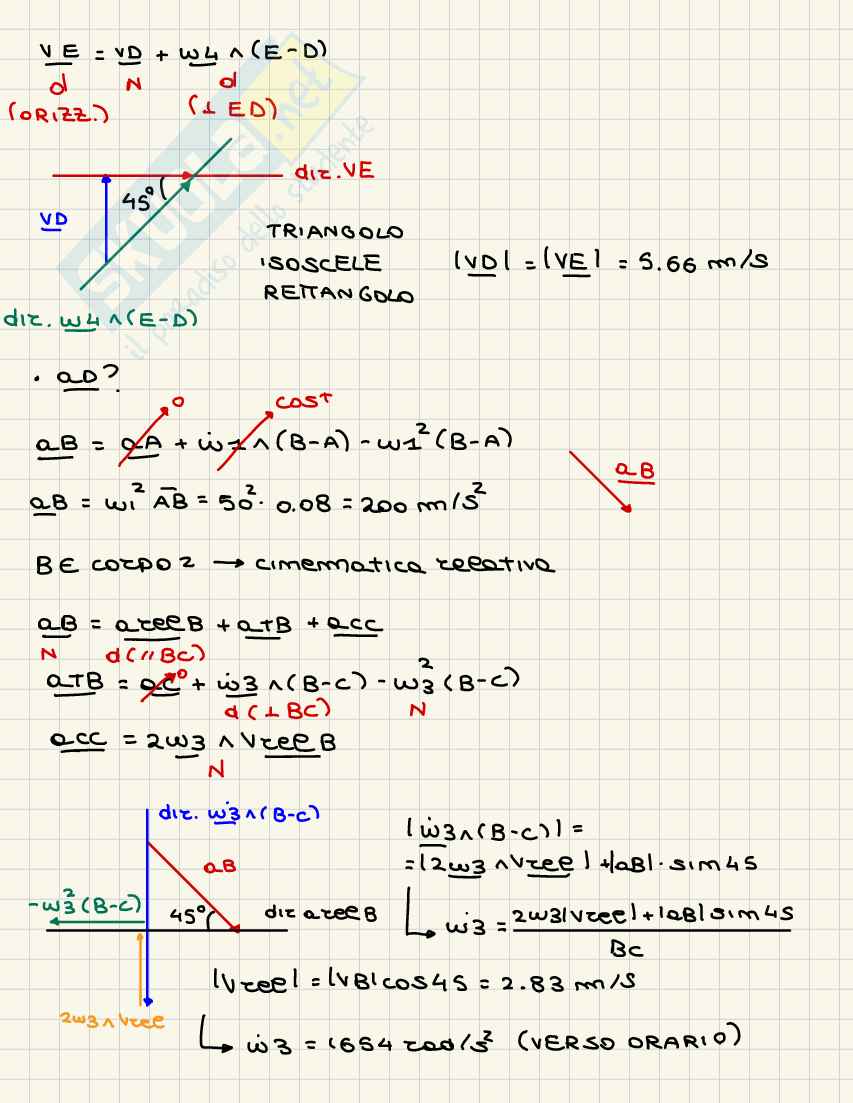 VE = VD + ω4 ∧ (E-D)
d N d
(ORIZZ.) (⊥ ED)
dir. VE
45°
VD
TRIANGOLO
ISOSCELE
RETTANGOLO
|VD| = |VE| = 5.66 m/s
dir. ω4 ∧ (E-D)
SKUOLA.net
il paradiso dello studente
· aD?
0 cost
aB = aA + ω̇1 ∧ (B-A) - ω1² (B-A)
aB
aB = ω1² AB = 50² · 0.08 = 200 m/s²
BE corpo 2 → cinematica relativa
aB = arelB + aTB + acc
N d (// BC)
aTB = aC + ω̇3 ∧ (B-C) - ω3² (B-C)
0
d (⊥ BC) N
acc = 2ω3 ∧ VrelB
N
dir. ω̇3 ∧ (B-C)
aB
-ω3² (B-C)
45°
dir arelB
2ω3 ∧ Vrel
|ω̇3 ∧ (B-C)| =
= |2ω3 ∧ Vrel| + |aB| · sin45
ω̇3 = 2ω3|Vrel| + |aB| sin45
BC
|Vrel| = |VB| cos45 = 2.83 m/s
ω̇3 = 1654 rad/s² (VERSO ORARIO)